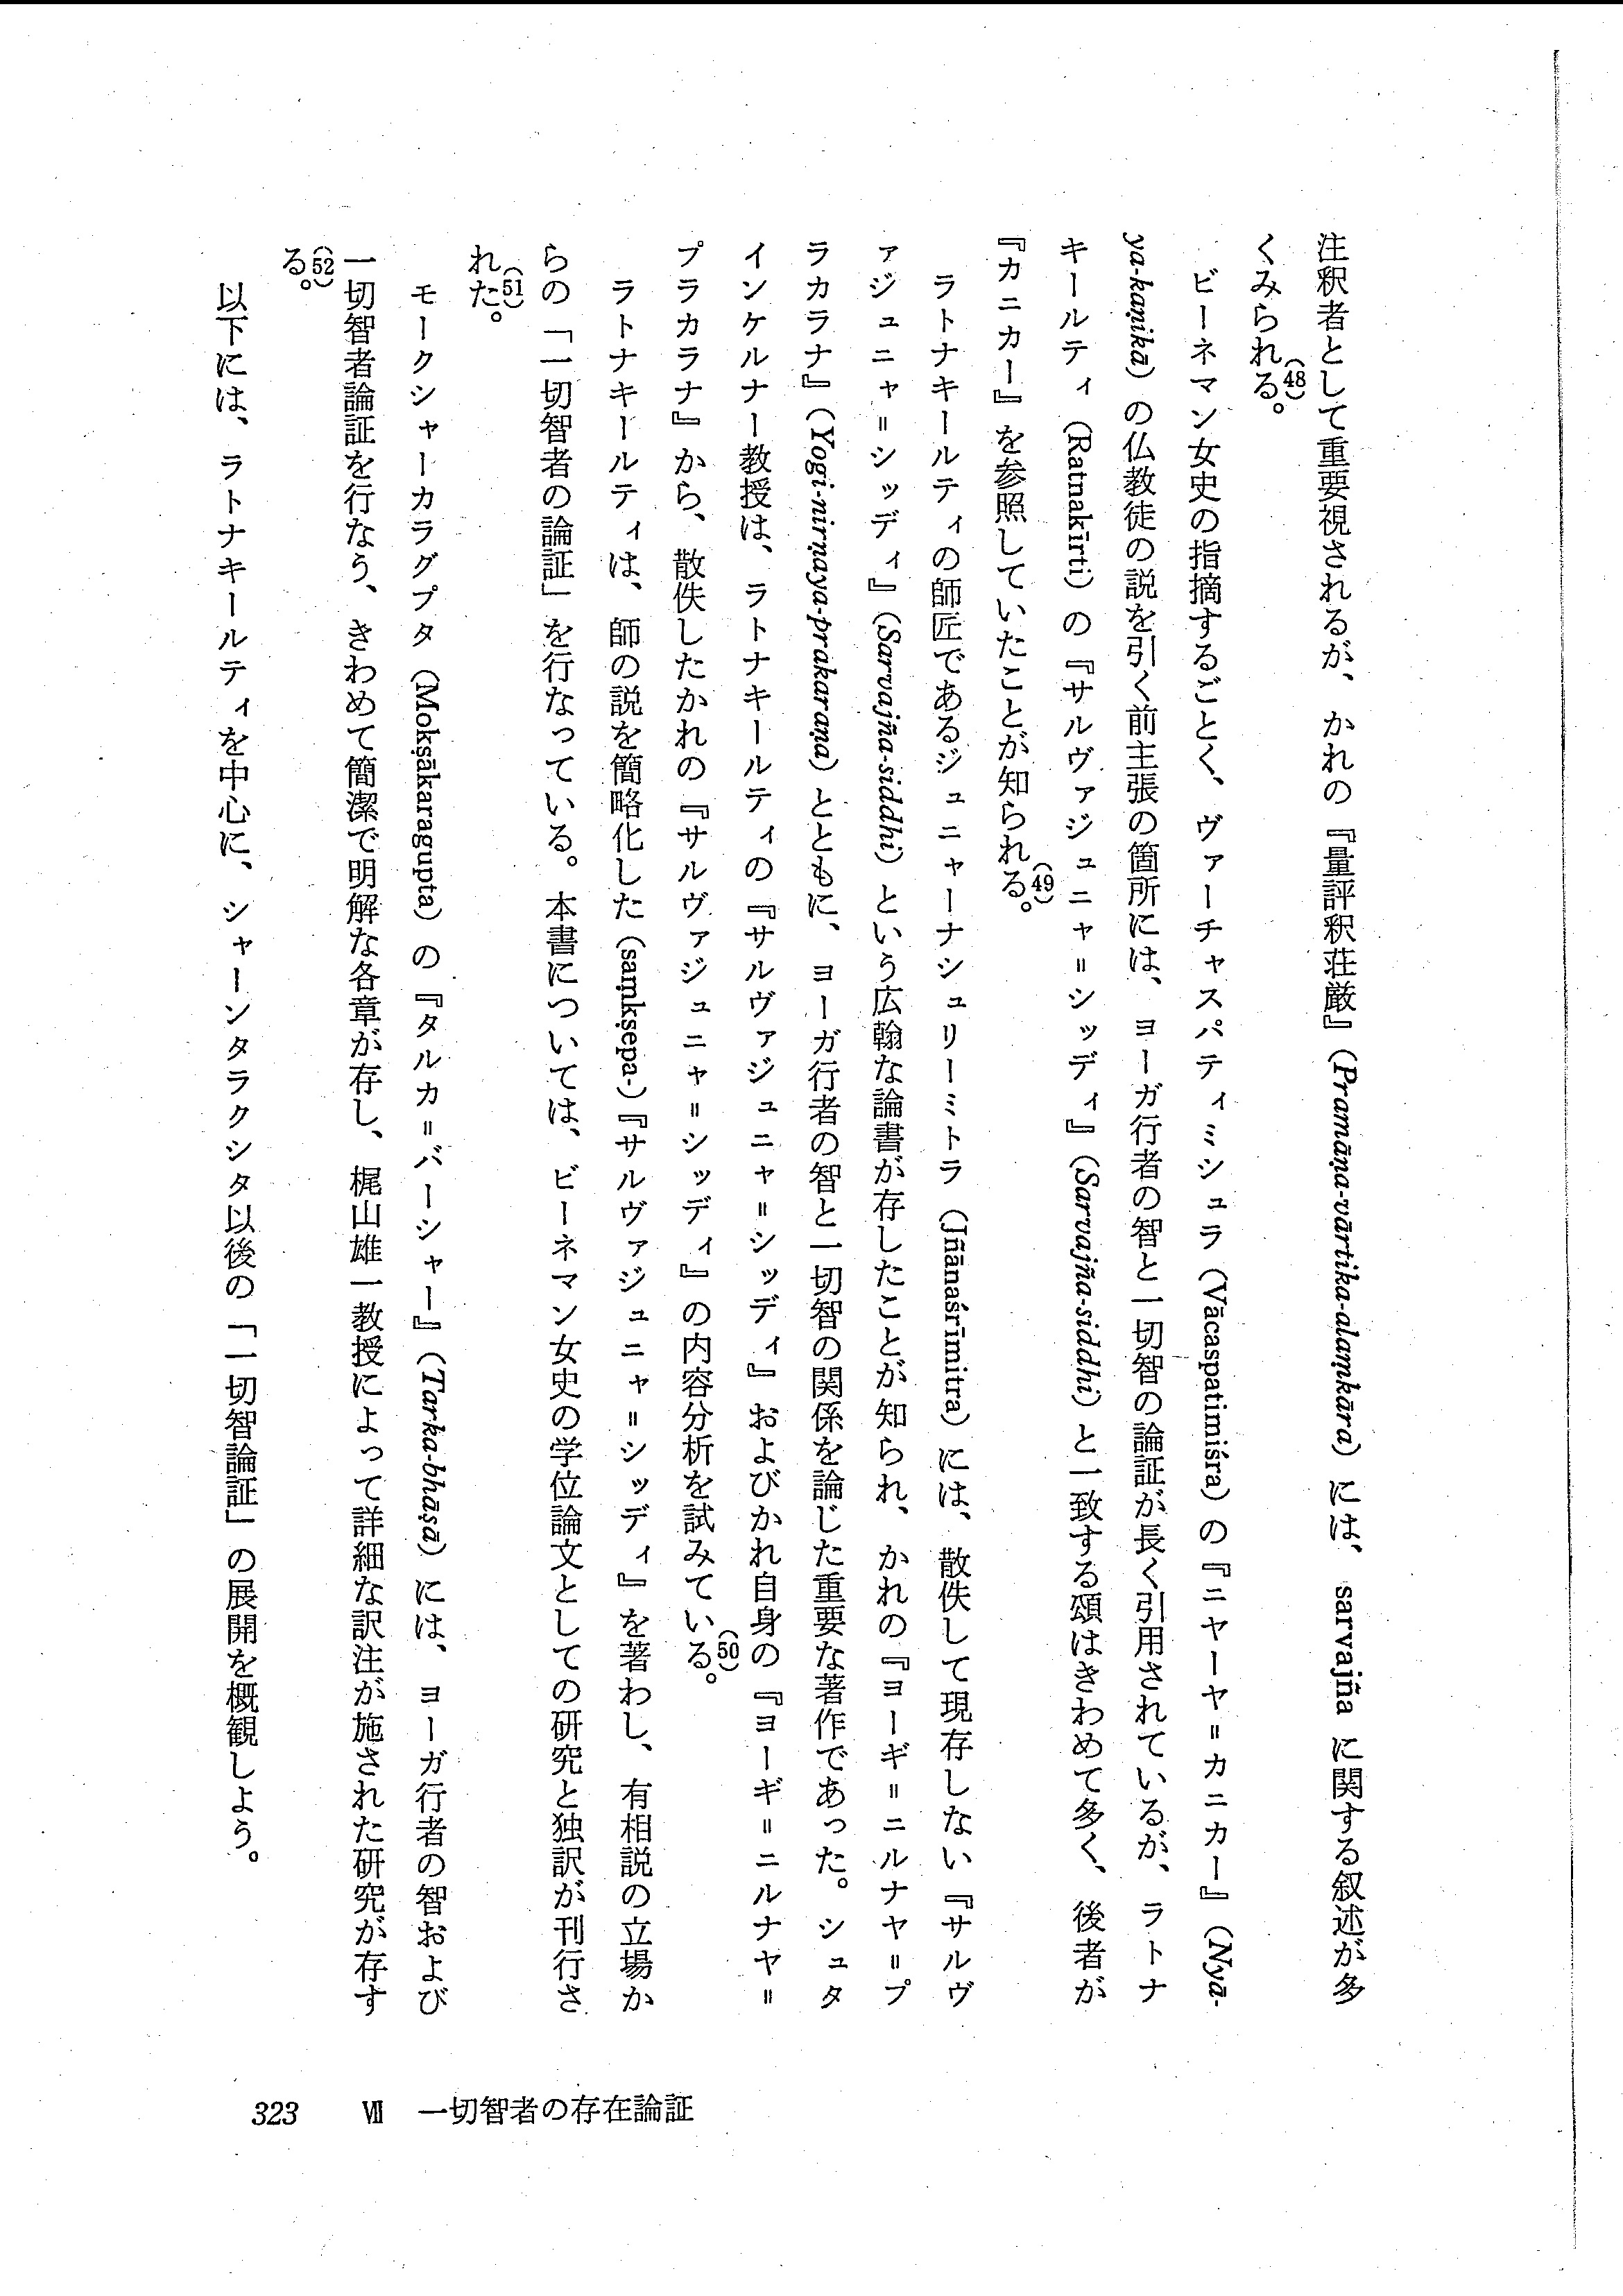 注釈者として重要視されるが、かれの『量評釈荘厳』（Pramāṇa-vārtika-alaṃkāra）には、sarvajña に関する叙述が多
くみられる。(48)
ビーネマン女史の指摘するごとく、ヴァーチャスパティミシュラ（Vācaspatimiśra）の『ニヤーヤ＝カニカー』（Nyā-
ya-kaṇikā）の仏教徒の説を引く前主張の箇所には、ヨーガ行者の智と一切智の論証が長く引用されているが、ラトナ
キールティ（Ratnakīrti）の『サルヴァジュニャ＝シッディ』（Sarvajña-siddhi）と一致する頌はきわめて多く、後者が
『カニカー』を参照していたことが知られる。(49)
ラトナキールティの師匠であるジュニャーナシュリーミトラ（Jñānaśrīmitra）には、散佚して現存しない『サルヴ
ァジュニャ＝シッディ』（Sarvajña-siddhi）という広翰な論書が存したことが知られ、かれの『ヨーギ＝ニルナヤ＝プ
ラカラナ』（Yogi-nirṇaya-prakaraṇa）とともに、ヨーガ行者の智と一切智の関係を論じた重要な著作であった。シュタ
インケルナー教授は、ラトナキールティの『サルヴァジュニャ＝シッディ』およびかれ自身の『ヨーギ＝ニルナヤ＝
プラカラナ』から、散佚したかれの『サルヴァジュニャ＝シッディ』の内容分析を試みている。(50)
ラトナキールティは、師の説を簡略化した（saṃkṣepa-）『サルヴァジュニャ＝シッディ』を著わし、有相説の立場か
らの「一切智者の論証」を行なっている。本書については、ビーネマン女史の学位論文としての研究と独訳が刊行さ
れた。(51)
モークシャーカラグプタ（Mokṣākaragupta）の『タルカ＝バーシャー』（Tarka-bhāṣā）には、ヨーガ行者の智および
一切智者論証を行なう、きわめて簡潔で明解な各章が存し、梶山雄一教授によって詳細な訳注が施された研究が存す
る。(52)
以下には、ラトナキールティを中心に、シャーンタラクシタ以後の「一切智論証」の展開を概観しよう。
323 Ⅶ 一切智者の存在論証